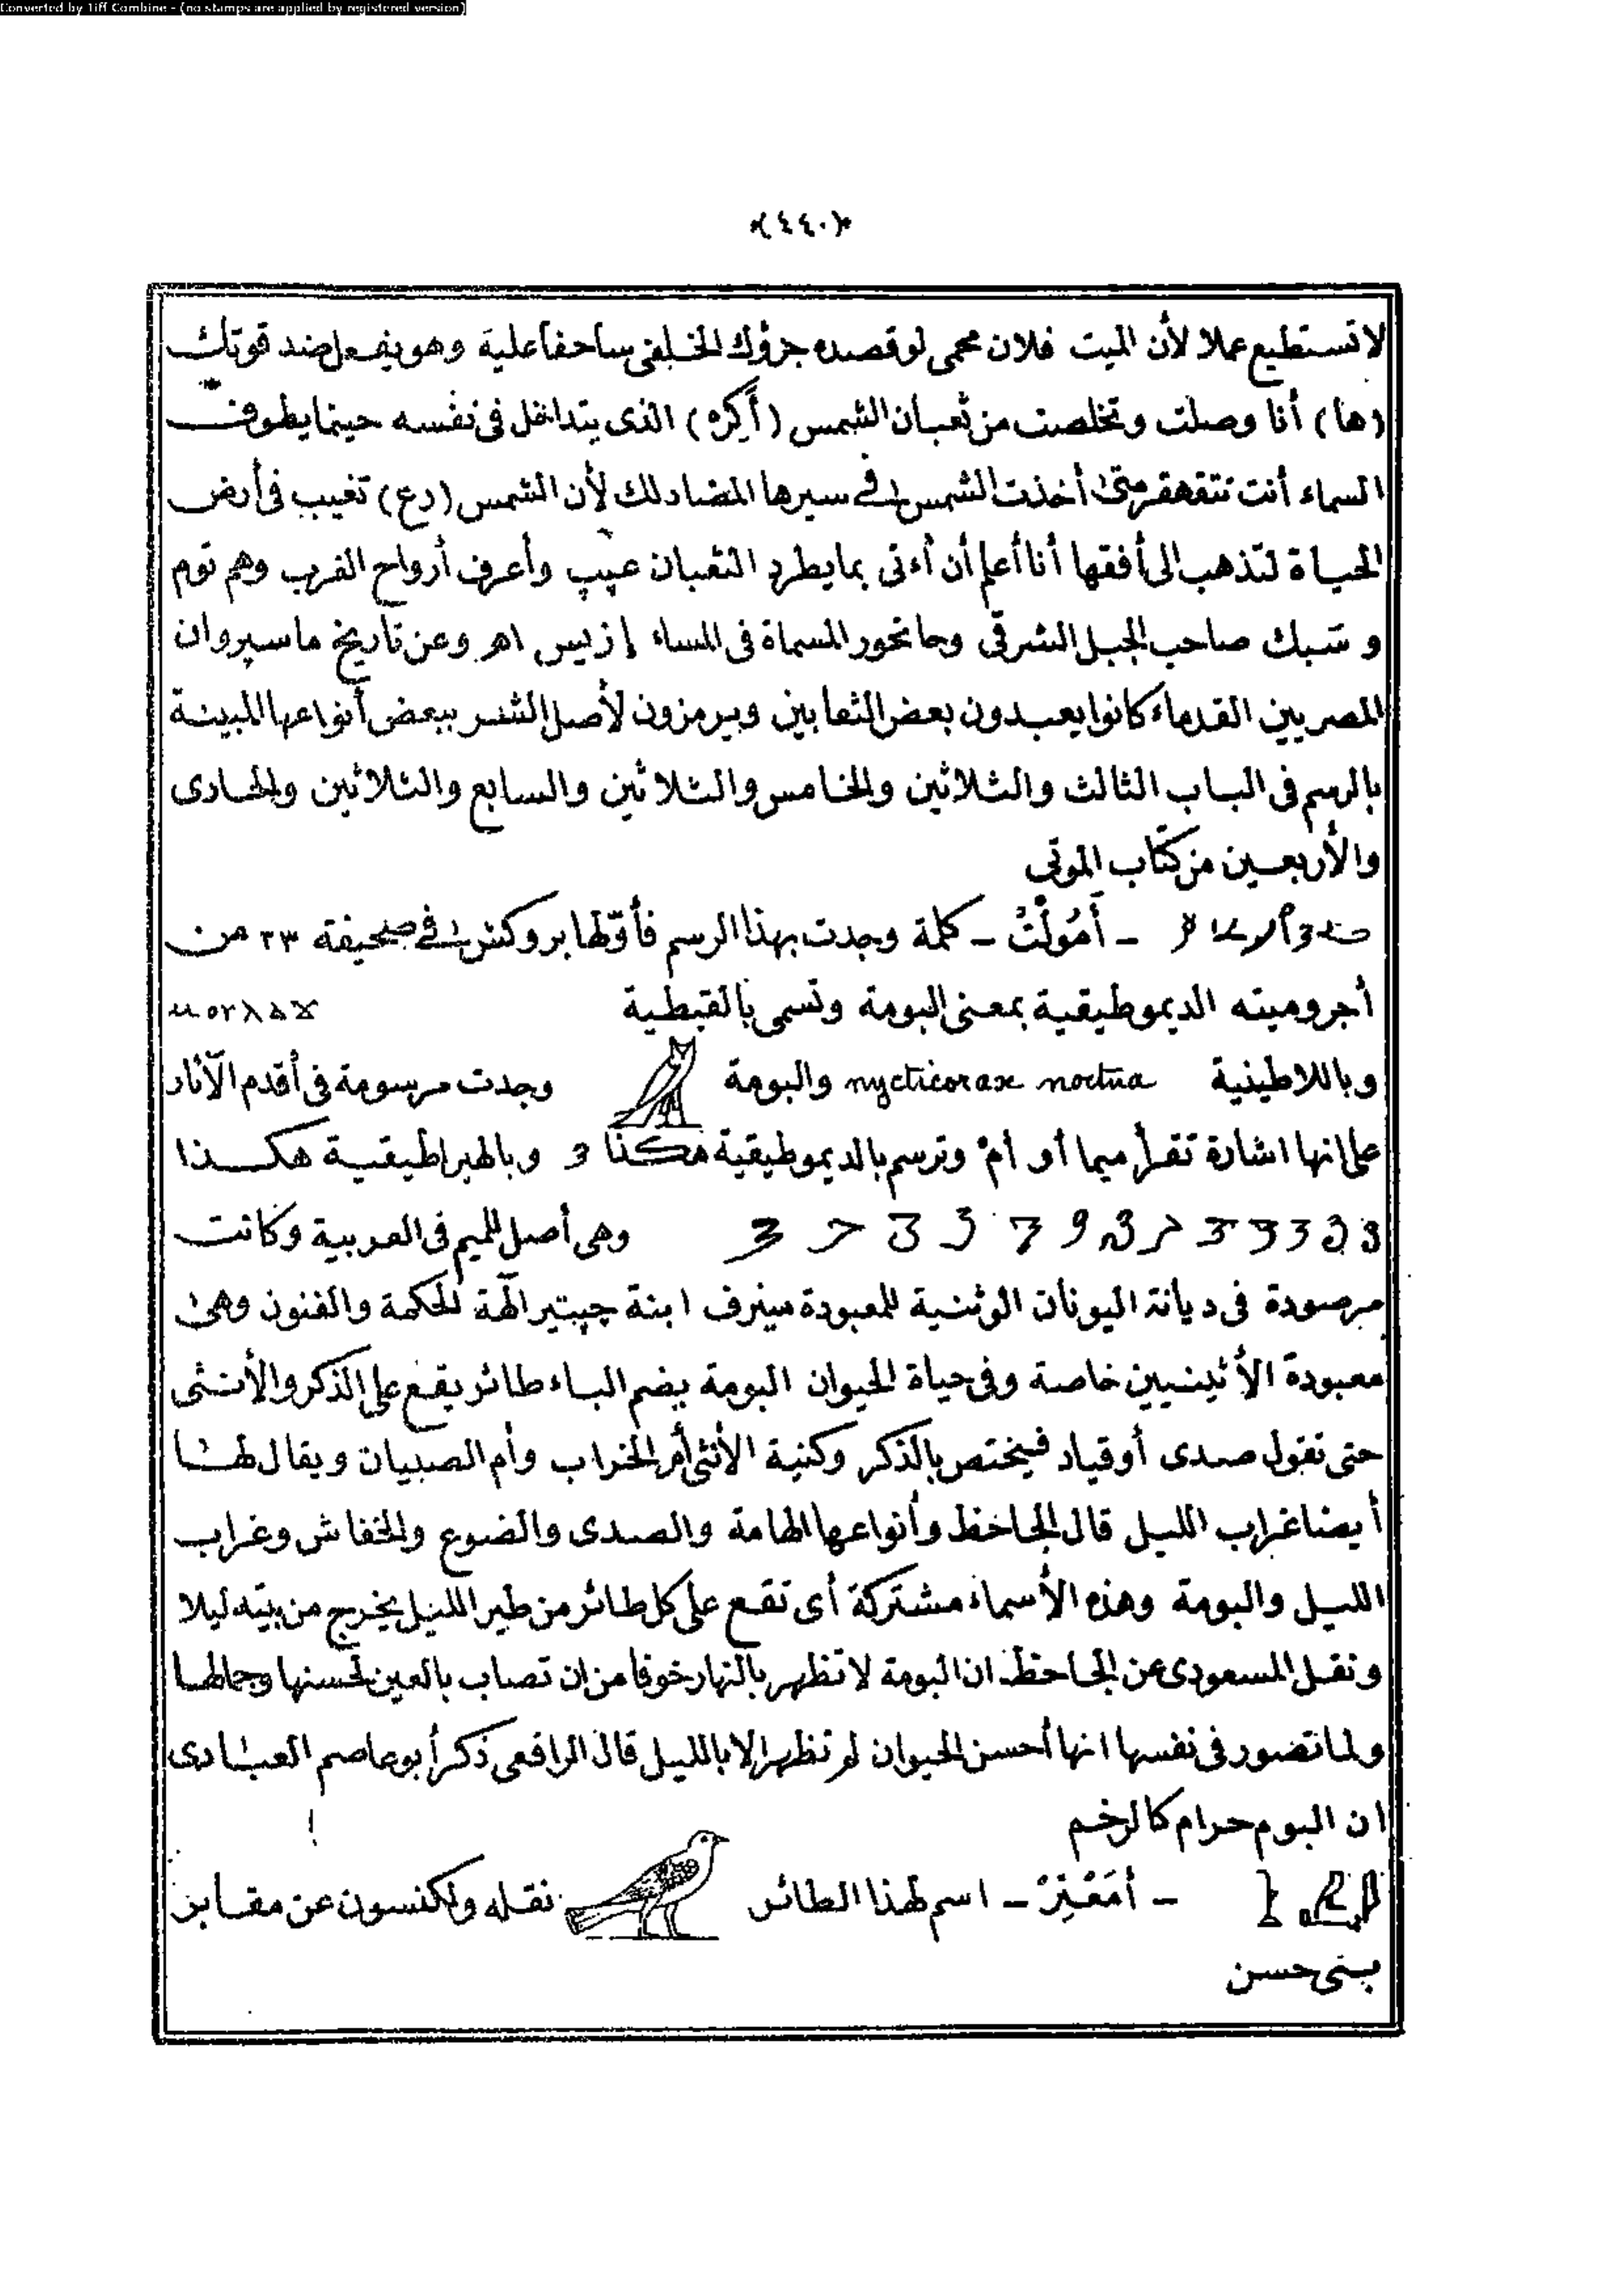 Converted by Tiff Combine - (no stamps are applied by registered version)
﴿٤٤٠﴾
لا تستطيع عملا لأن الميت فلان محمى لو قصده جزؤك الخلفى ساحفا عليه وهو يفعل ضد قوتك
(ها) أنا وصلت وتخلصت من ثعبان الشمس (أكره) الذى يتداخل فى نفسه حينما يطوف
السماء أنت تتقهقر متى أخذت الشمس فى سيرها المضاد لك لأن الشمس (رع) تغيب فى أرض
الحياة لتذهب الى أفقها أنا أعلم أن أءتى بما يطرد الثعبان عپپ وأعرف أرواح الغرب وهم توم
و سَبك صاحب الجبل الشرقى وحاتحور المسماة فى المساء إزيس اهـ وعن تاريخ ماسپرو ان
المصريين القدماء كانوا يعبدون بعض الثعابين ويرمزون لأصل الشر ببعض أنواعها المبينة
بالرسم فى الباب الثالث والثلاثين والخامس والثلاثين والسابع والثلاثين والحادى
والأربعين من كتاب الموتى
– أَمُولْتْ – كلمة وجدت بهذا الرسم فأولها بروكش فى صحيفة ٢٣ من
أجروميته الديموطيقية بمعنى البومة وتسمى بالقبطية ⲙⲟⲩⲗⲁϫ
وباللاطينية nycticorax noctua والبومة وجدت مرسومة فى أقدم الآثار
على انها اشارة تقرأ ميما أو أم وترسم بالديموطيقية هكذا وبالهيراطيقية هكذا
وهى أصل للميم فى العربية وكانت
مرصودة فى ديانة اليونان الوثنية للمعبودة مينرف ابنة چپتير الٓهة الحكمة والفنون وهى
معبودة الأثينيين خاصة وفى حياة الحيوان البومة بضم الباء طائر يقع على الذكر والأنثى
حتى تقول صدى أو قياد فيختص بالذكر وكنية الأنثى أم الخراب وأم الصبيان ويقال لها
أيضا غراب الليل قال الجاحظ وأنواعها الهامة والصدى والضوع والخفاش وغراب
الليل والبومة وهذه الأسماء مشتركة أى تقع على كل طائر من طير الليل يخرج من بيته ليلا
ونقل المسعودى عن الجاحظ ان البومة لا تظهر بالنهار خوفا من ان تصاب بالعين لحسنها وجمالها
ولما تصور فى نفسها انها أحسن الحيوان لم تظهر إلا بالليل قال الرافعى ذكر أبو عاصم العبادى
ان البوم حرام كالرخم
– – اسم لهذا الطائر نقله ولكنسون عن مقابر
بنى حسن